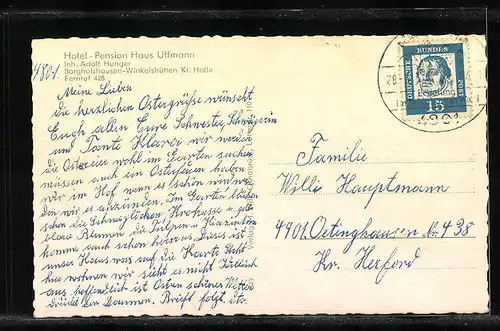 Hotel - Pension Haus Uffmann
Inh. Adolf Hunger
Borgholzhausen-Winkelshütten Kr. Halle
Fernruf 428
4801
Meine Lieben
die herzlichen Ostergrüße wünscht
Euch allen Eure Schwester, Schwägerin
und Tante Klara wir werden
die Ostereier wohl im Garten suchen
müssen auch ein Osterfeuer haben
wir im Hof wenn es schön
den wir es anzünden. Im Garten blühen
schon die Schneeglöckchen, Krokusse u. gelb
blaue Blumen die Tulpen u Hyazinthen
kommen auch schon heraus. Dass ist
unser Haus was auf die Karte steht
hier wohnen wir sieht es nicht
aus hoffentlich ist Ostern schönes Wetter
drückt den Daumen. Brief folgt.
DEUTSCHE
BUNDES
POST
15
4801
Familie
Willi Hauptmann
4901 Oetinghausen Nr. 438
Kr. Herford